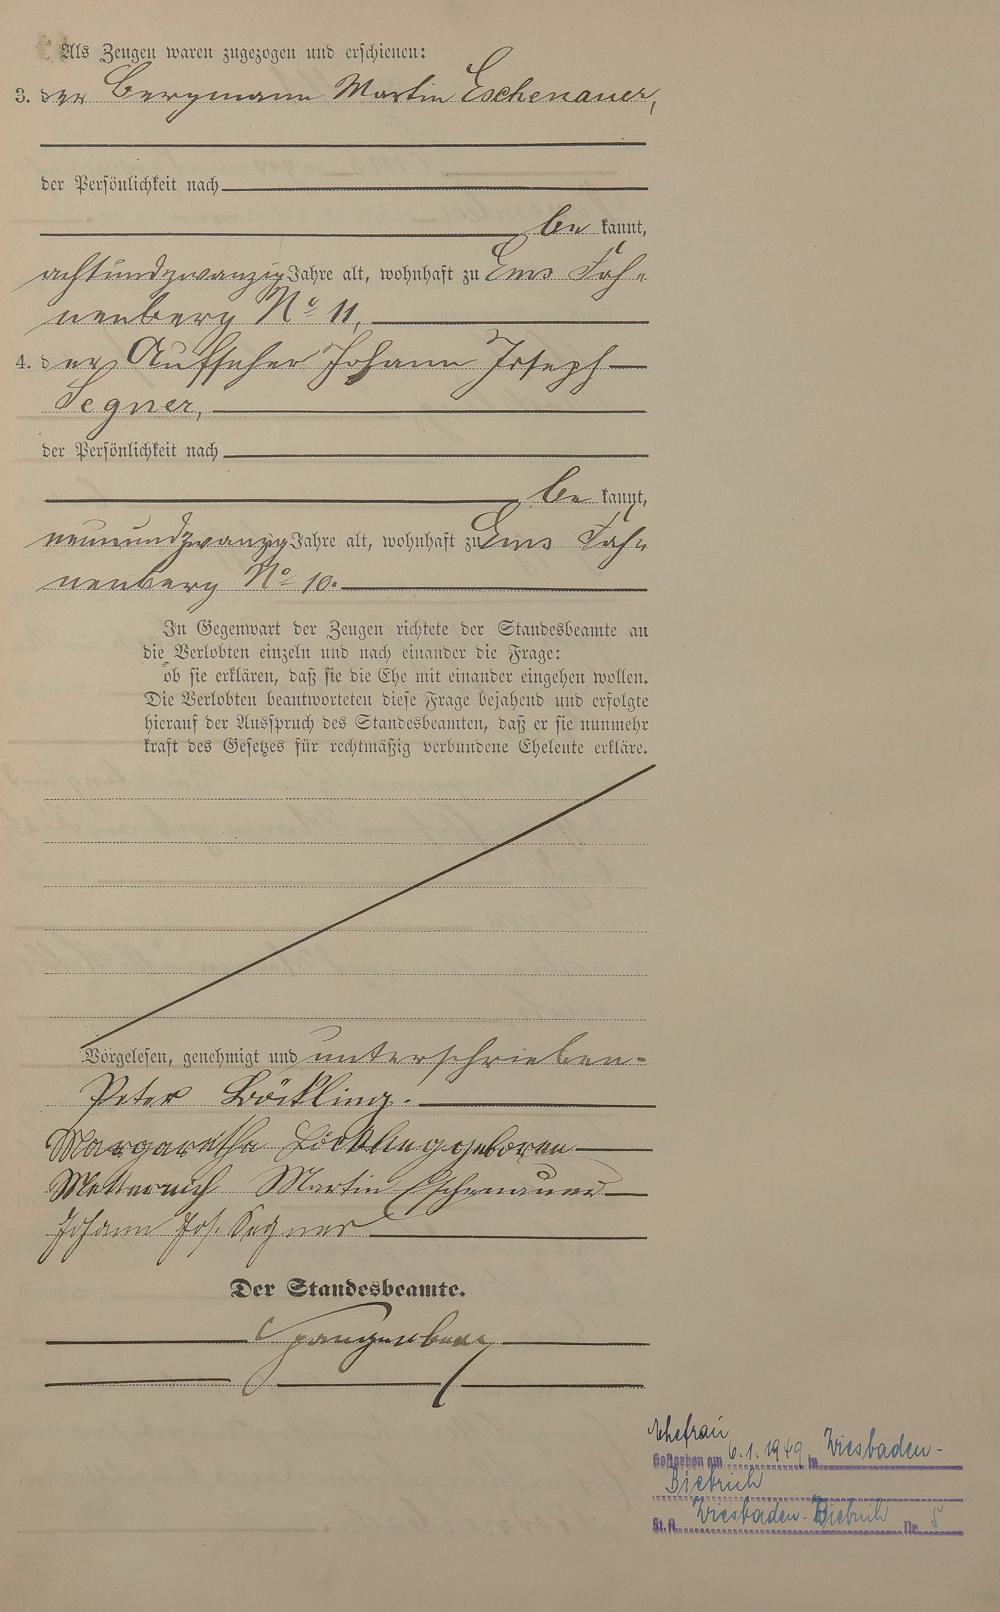 Als Zeugen waren zugezogen und erschienen:
3. der Bergmann Martin Eschenauer,
der Persönlichkeit nach
be kannt,
achtundzwanzig Jahre alt, wohnhaft zu Ems Fah-
nenberg No 11,
4. der Aufseher Johann Joseph
Segner,
der Persönlichkeit nach
be kannt,
neunundzwanzig Jahre alt, wohnhaft zu Ems Fah-
nenberg No 10.
In Gegenwart der Zeugen richtete der Standesbeamte an
die Verlobten einzeln und nach einander die Frage:
ob sie erklären, daß sie die Ehe mit einander eingehen wollen.
Die Verlobten beantworteten diese Frage bejahend und erfolgte
hierauf der Ausspruch des Standesbeamten, daß er sie nunmehr
kraft des Gesetzes für rechtmäßig verbundene Eheleute erkläre.
Vorgelesen, genehmigt und unterschrieben.
Peter Böckling.
Margaretha Böckling geboren
Metternich Martin Eschenauer
Johann Jos. Segner
Der Standesbeamte.
Spangenberg
Ehefrau
Gestorben am 6.1.1949 in Wiesbaden-
Biebrich
St. A. Wiesbaden-Biebrich Nr. 5